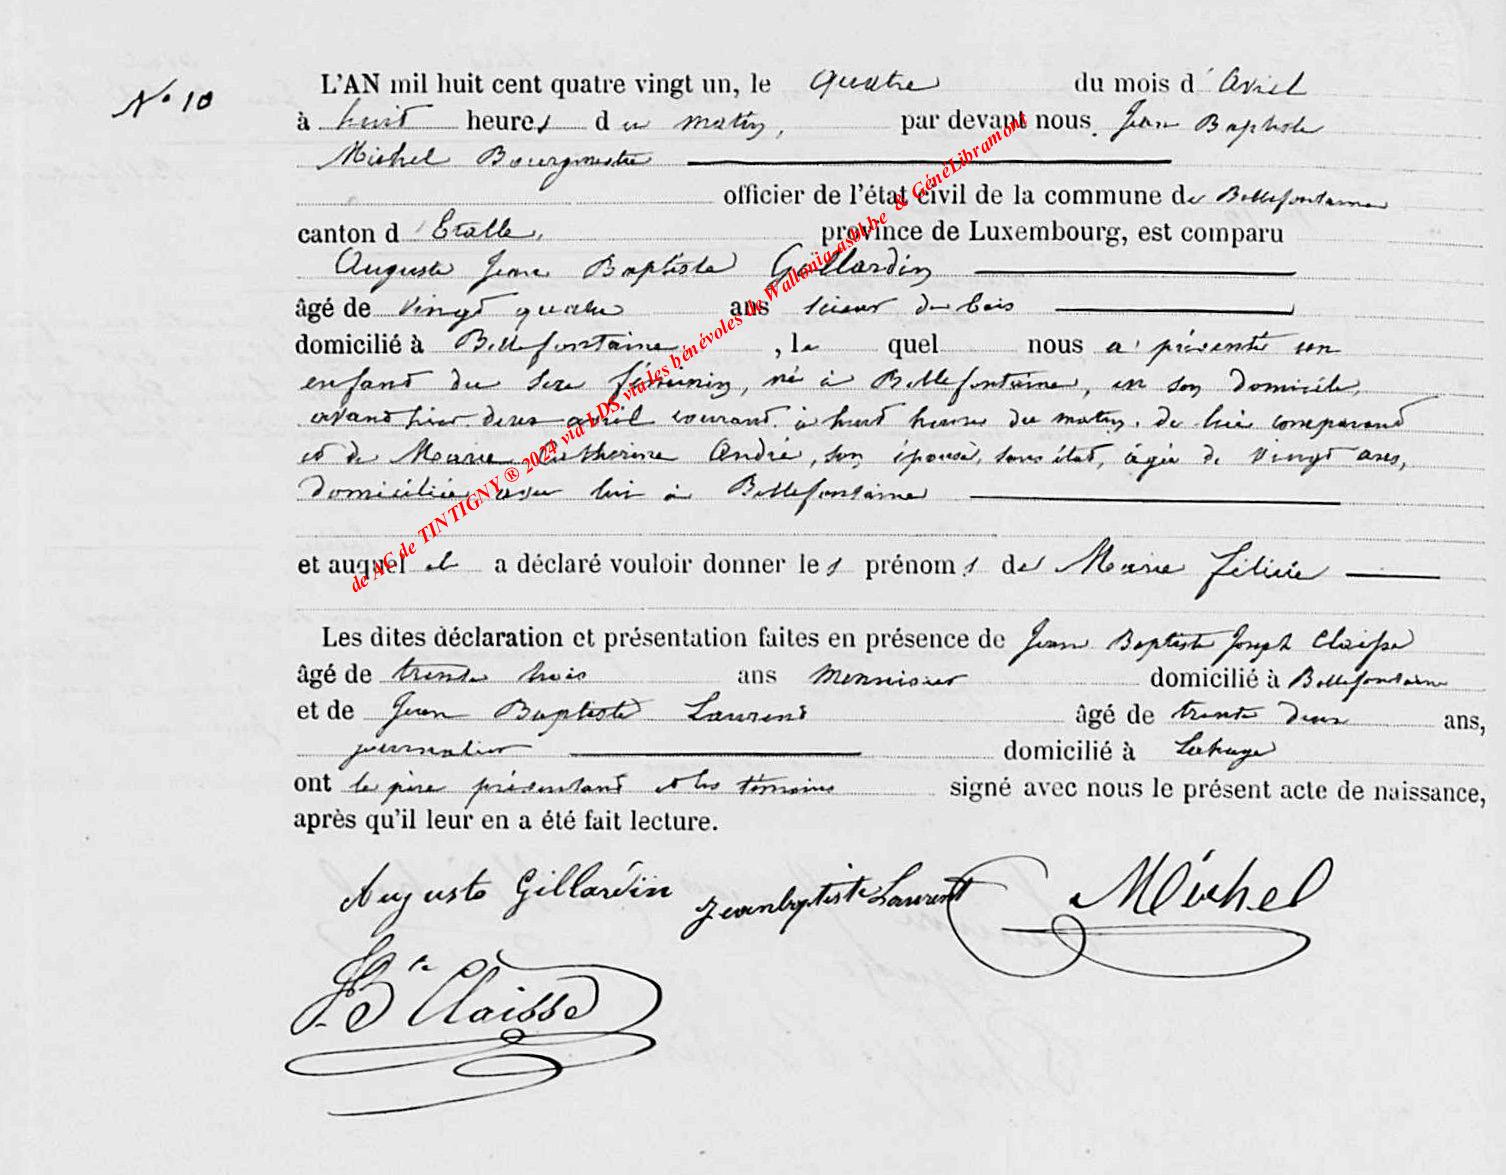 N° 10
L'AN mil huit cent quatre vingt un, le quatre du mois d'Avril
à huit heures du matin, par devant nous Jean Baptiste
Michel Bourgmestre
officier de l'état civil de la commune de Bellefontaine
canton d'Etalle, province de Luxembourg, est comparu
Auguste Jean Baptiste Gillardin
âgé de vingt quatre ans scieur de bois
domicilié à Bellefontaine, le quel nous a présenté un
enfant du sexe féminin, né à Bellefontaine, en son domicile,
avant hier deux avril courant à huit heures du matin, de lui comparant
et de Marie Catherine André, son épouse, sans état, âgée de vingt ans,
domiciliée avec lui à Bellefontaine
et auquel il a déclaré vouloir donner les prénoms de Marie Félicie
Les dites déclaration et présentation faites en présence de Jean Baptiste Joseph Claisse
âgé de trente trois ans menuisier domicilié à Bellefontaine
et de Jean Baptiste Laurent âgé de trente deux ans,
journalier domicilié à Lahage
ont le père présentant et les témoins signé avec nous le présent acte de naissance,
après qu'il leur en a été fait lecture.
Auguste Gillardin Jeanbaptiste Laurent Michel
JBte Claisse
de AC de TINTIGNY ® 2024 via LDS via les bénévoles de Wallonia-asbl.be & GénéLibramont